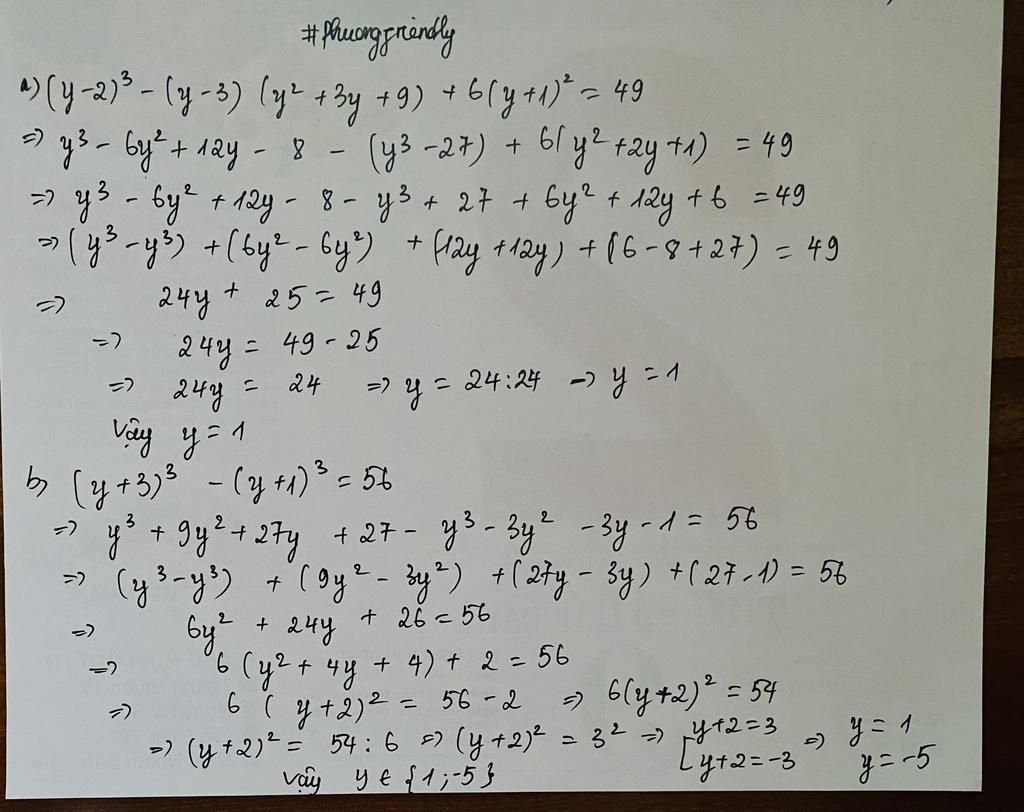 #Phuongfriendly
a) (y-2)³ - (y-3) (y² + 3y + 9) + 6(y+1)² = 49
=> y³ - 6y² + 12y - 8 - (y³ - 27) + 6(y² + 2y + 1) = 49
=> y³ - 6y² + 12y - 8 - y³ + 27 + 6y² + 12y + 6 = 49
=> (y³ - y³) + (6y² - 6y²) + (12y + 12y) + (6 - 8 + 27) = 49
=> 24y + 25 = 49
=> 24y = 49 - 25
=> 24y = 24 => y = 24:24 -> y = 1
Vậy y = 1
b) (y+3)³ - (y+1)³ = 56
=> y³ + 9y² + 27y + 27 - y³ - 3y² - 3y - 1 = 56
=> (y³ - y³) + (9y² - 3y²) + (27y - 3y) + (27 - 1) = 56
=> 6y² + 24y + 26 = 56
=> 6 (y² + 4y + 4) + 2 = 56
=> 6 (y+2)² = 56 - 2 => 6(y+2)² = 54
=> (y+2)² = 54 : 6 => (y+2)² = 3² => [ y+2 = 3 => y = 1
y+2 = -3 y = -5
Vậy y ∈ {1; -5}